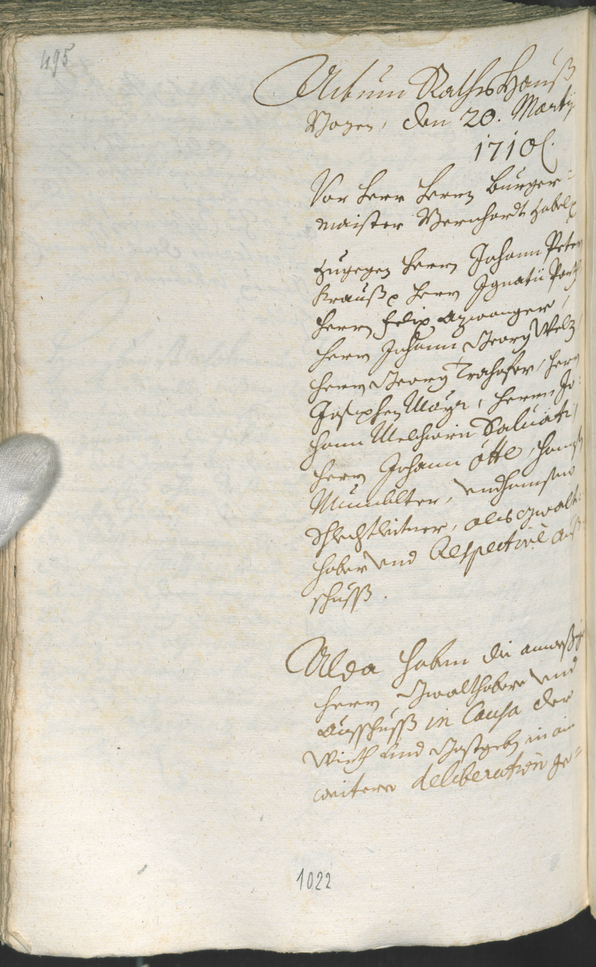 495
Actum Rathshauß
Bozen, den 20. Marty
1710.
Vor Herr Herrn Burger-
maister Bernhardt
zugegen Herrn Johann Peter
Krauß, Herrn Ignatii
Herrn Felix Azwanger,
Herrn Johann Georg Welz,
Herrn Georg Trahofer, Herrn
Josephen Mayr, Herrn Jo-
hann Melchiorn Salvati,
Herrn Johann Otto,
und
Schlechtleitner, als Gwalt-
haber und Respective Auß-
schuss.
Alda haben die anweßige
Herrn Gwalthabere und
Ausschuss in Causa der
Wirth und Gastgeb in ain
weitere deliberation ge-
1022